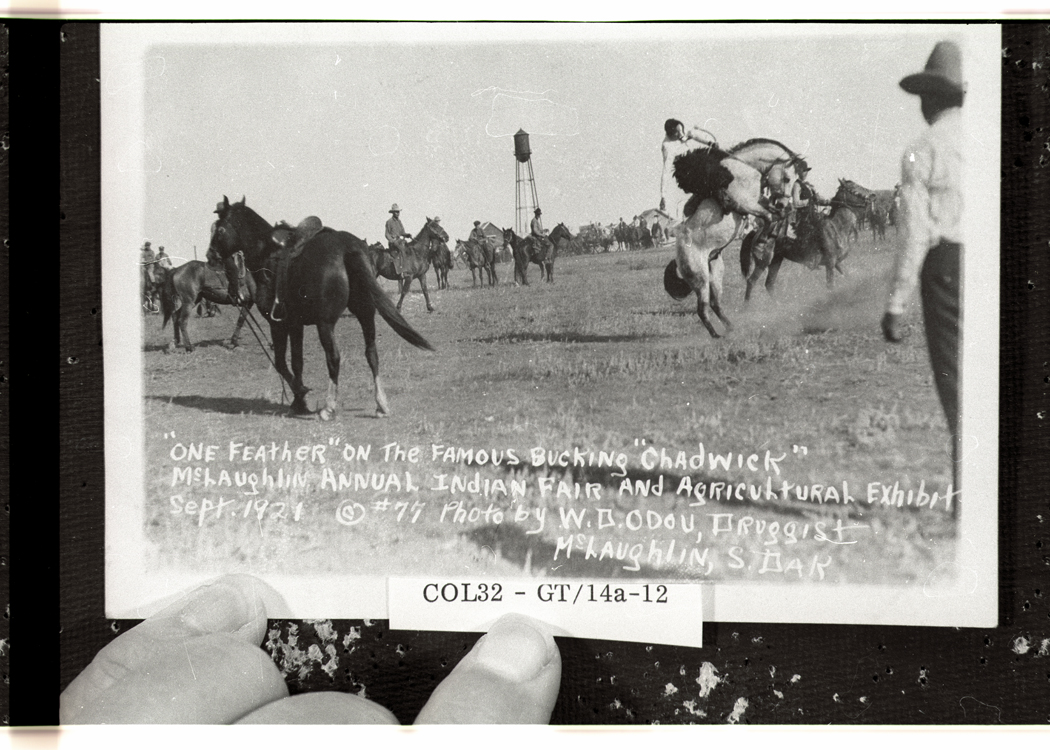 "ONE FEATHER" ON THE FAMOUS BUCKING "CHADWICK"
McLAUGHLIN ANNUAL INDIAN FAIR AND AGRICULTURAL EXHIBIT
Sept. 1921 © #77 Photo by W.D.ODOU, DRUGGIST
McLAUGHLIN, S. DAK
COL32 - GT/14a-12